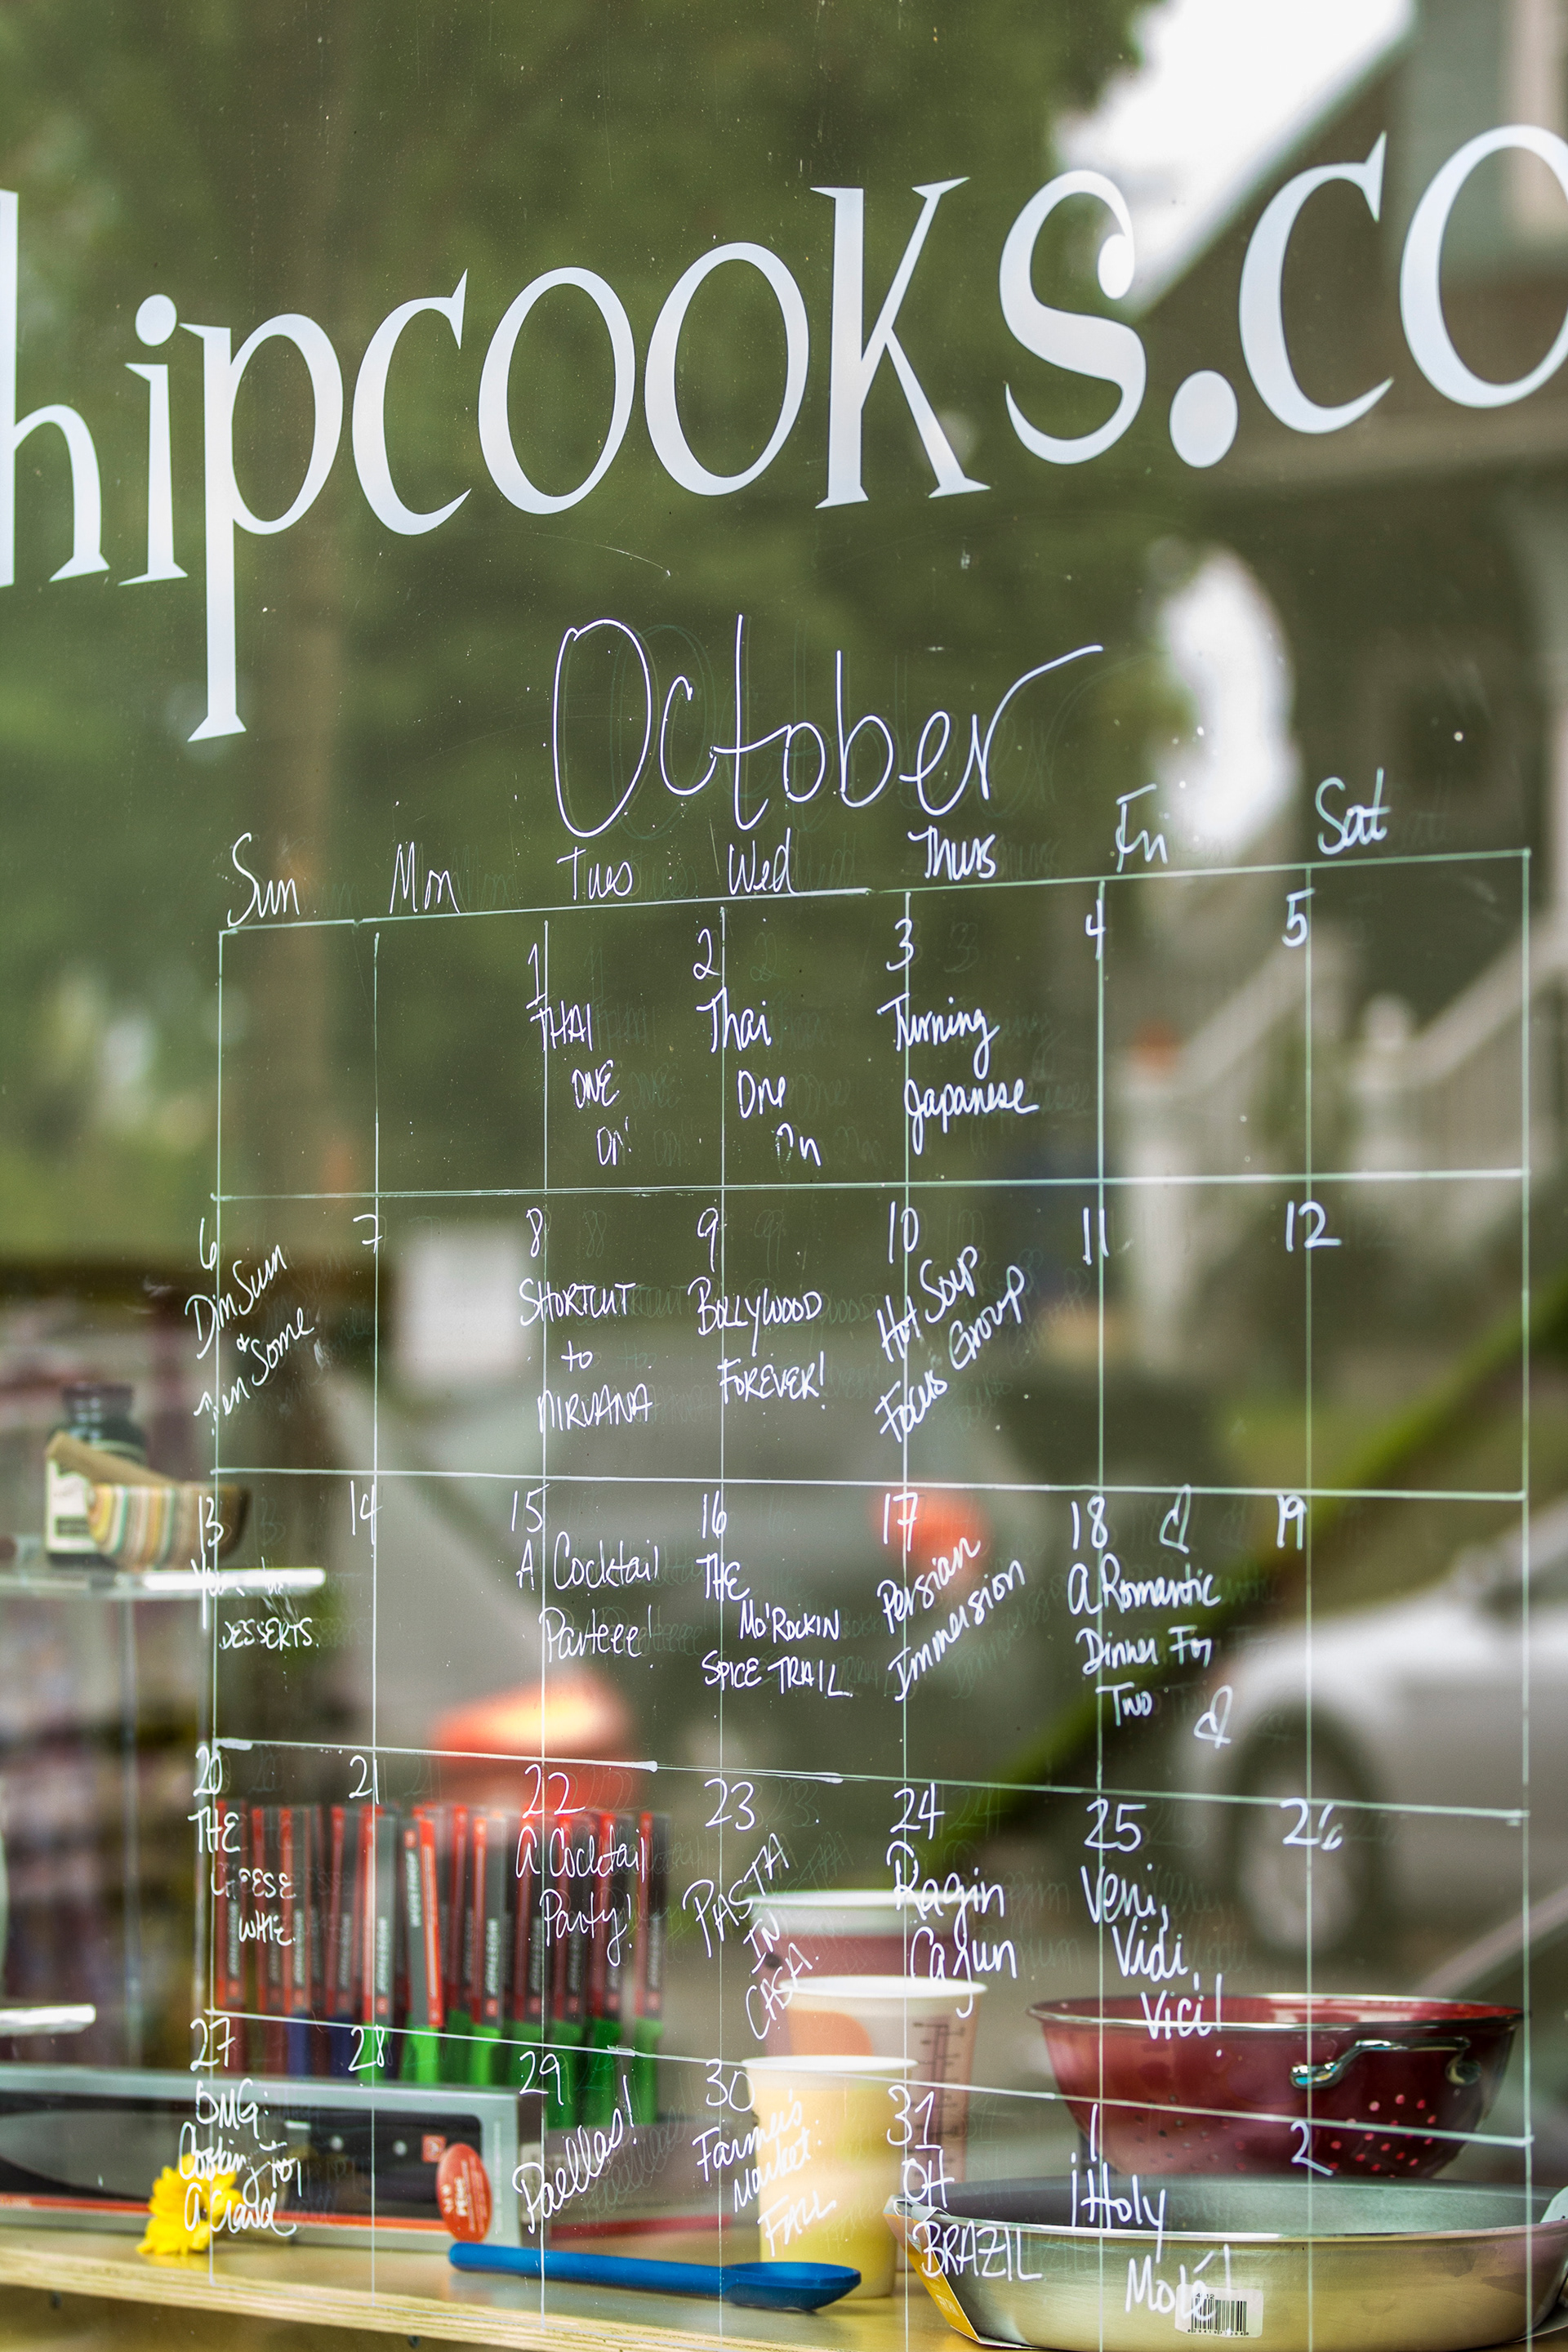 hipcooks.co
October
Sun Mon Tues Wed Thurs Fri Sat
1
THAI
ONE
ON!
2
Thai
One
On
3
Turning
Japanese
4
5
6
Dim Sum
&
Then Some
7
8
SHORTCUT
to
NIRVANA
9
BOLLYWOOD
FOREVER!
10
Hot Soup
Focus Group
11
12
13
DESSERTS.
14
15
A Cocktail
Parteee!
16
THE
MO'ROCKIN
SPICE TRAIL
17
Persian
Immersion
18
A Romantic
Dinner For
Two
19
20
THE
CHEESE
21
22
A Cocktail
Party!
23
PASTA
IN
CASA.
24
Ragin
Cajun
25
Veni,
Vidi,
Vici!
26
27
OMG:
Cooking for
A Crowd
28
29
Paellas!
30
Farmer's
Market:
FALL
31
OH
BRAZIL
1
¡Holy
Molé!
2